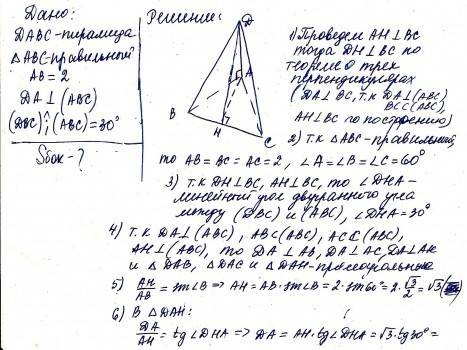 Дано:
DABC-пирамида
△ABC-правильный
AB = 2
DA ⊥ (ABC)
(DBC)^(ABC) = 30°
Sбок - ?
Решение:
D
A
B
H
C
1) Проведем AH ⊥ BC
тогда DH ⊥ BC по
теореме о трех
перпендикулярах
(DA ⊥ BC, т.к DA ⊥ (ABC)
BC⊂(ABC),
AH ⊥ BC по построению)
2) т.к △ABC-правильный,
то AB = BC = AC = 2, ∠A = ∠B = ∠C = 60°
3) т.к DH ⊥ BC, AH ⊥ BC, то ∠DHA-
линейный угол двугранного угла
между (DBC) и (ABC), ∠DHA = 30°
4) т.к. DA ⊥ (ABC), AB⊂(ABC), AC⊂(ABC),
AH⊥(ABC), то DA ⊥ AB, DA ⊥ AC, DA ⊥ AH
и △DAB, △DAC и △DAH-прямоугольные
5) AH/AB = sin∠B => AH = AB · sin∠B = 2 · sin 60° = 2 · √3/2 = √3
6) В △DAH:
DA/AH = tg∠DHA => DA = AH · tg∠DHA = √3 · tg 30° =